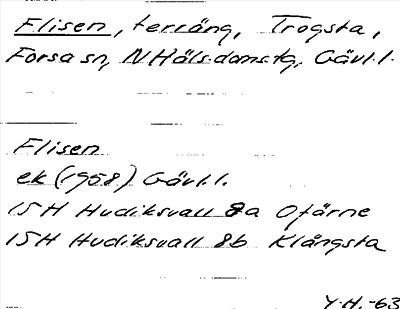 Flisen, terräng, Trogsta,
Forsa sn, N Hälsdomstg, Gävl.l.
Flisen
ek (1958) Gävl.l.
15H Hudiksvall 8a Ofärne
15H Hudiksvall 8b Klångsta
Y.H.-63